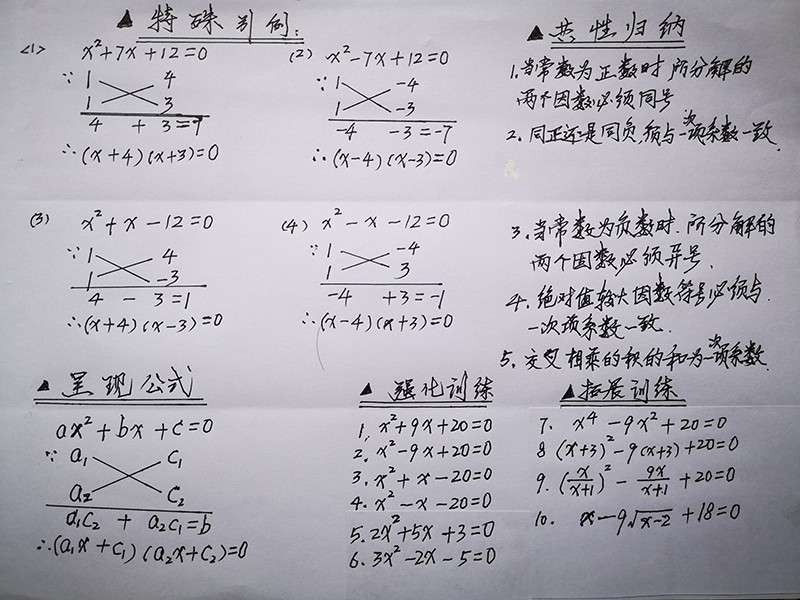 ▲ 特殊列例:
<1> x²+7x+12=0
∵ 1 4
1 3
4 + 3=7
∴(x+4)(x+3)=0
(2) x²-7x+12=0
1 -4
1 -3
-4 -3=-7
∴(x-4)(x-3)=0
(3) x²+x-12=0
∵ 1 4
1 -3
4 - 3=1
∴(x+4)(x-3)=0
(4) x²-x-12=0
∵ 1 -4
1 3
-4 +3=-1
∴(x-4)(x+3)=0
▲ 共性归纳
1.当常数为正数时 所分解的
两个因数必须同号
2. 同正还是同负,须与一次项系数一致.
3.当常数为负数时.所分解的
两个因数必须异号.
4.绝对值较大因数符号必须与
一次项系数一致.
5.交叉相乘的积的和为一次项系数.
▲ 呈现公式
ax²+bx+c=0
∵ a₁ c₁
a₂ c₂
a₁c₂ + a₂c₁=b
∴(a₁x+c₁)(a₂x+c₂)=0
▲ 强化训练
1. x²+9x+20=0
2. x²-9x+20=0
3. x²+x-20=0
4. x²-x-20=0
5. 2x²+5x+3=0
6. 3x²-2x-5=0
▲ 拓展训练
7. x⁴-9x²+20=0
8 (x+3)²-9(x+3)+20=0
9. (x/(x+1))² - 9x/(x+1) +20=0
10. x-9√(x-2)+18=0